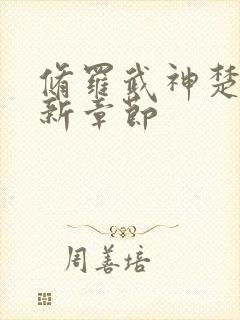 脩羅武神楚
新章節
周善培